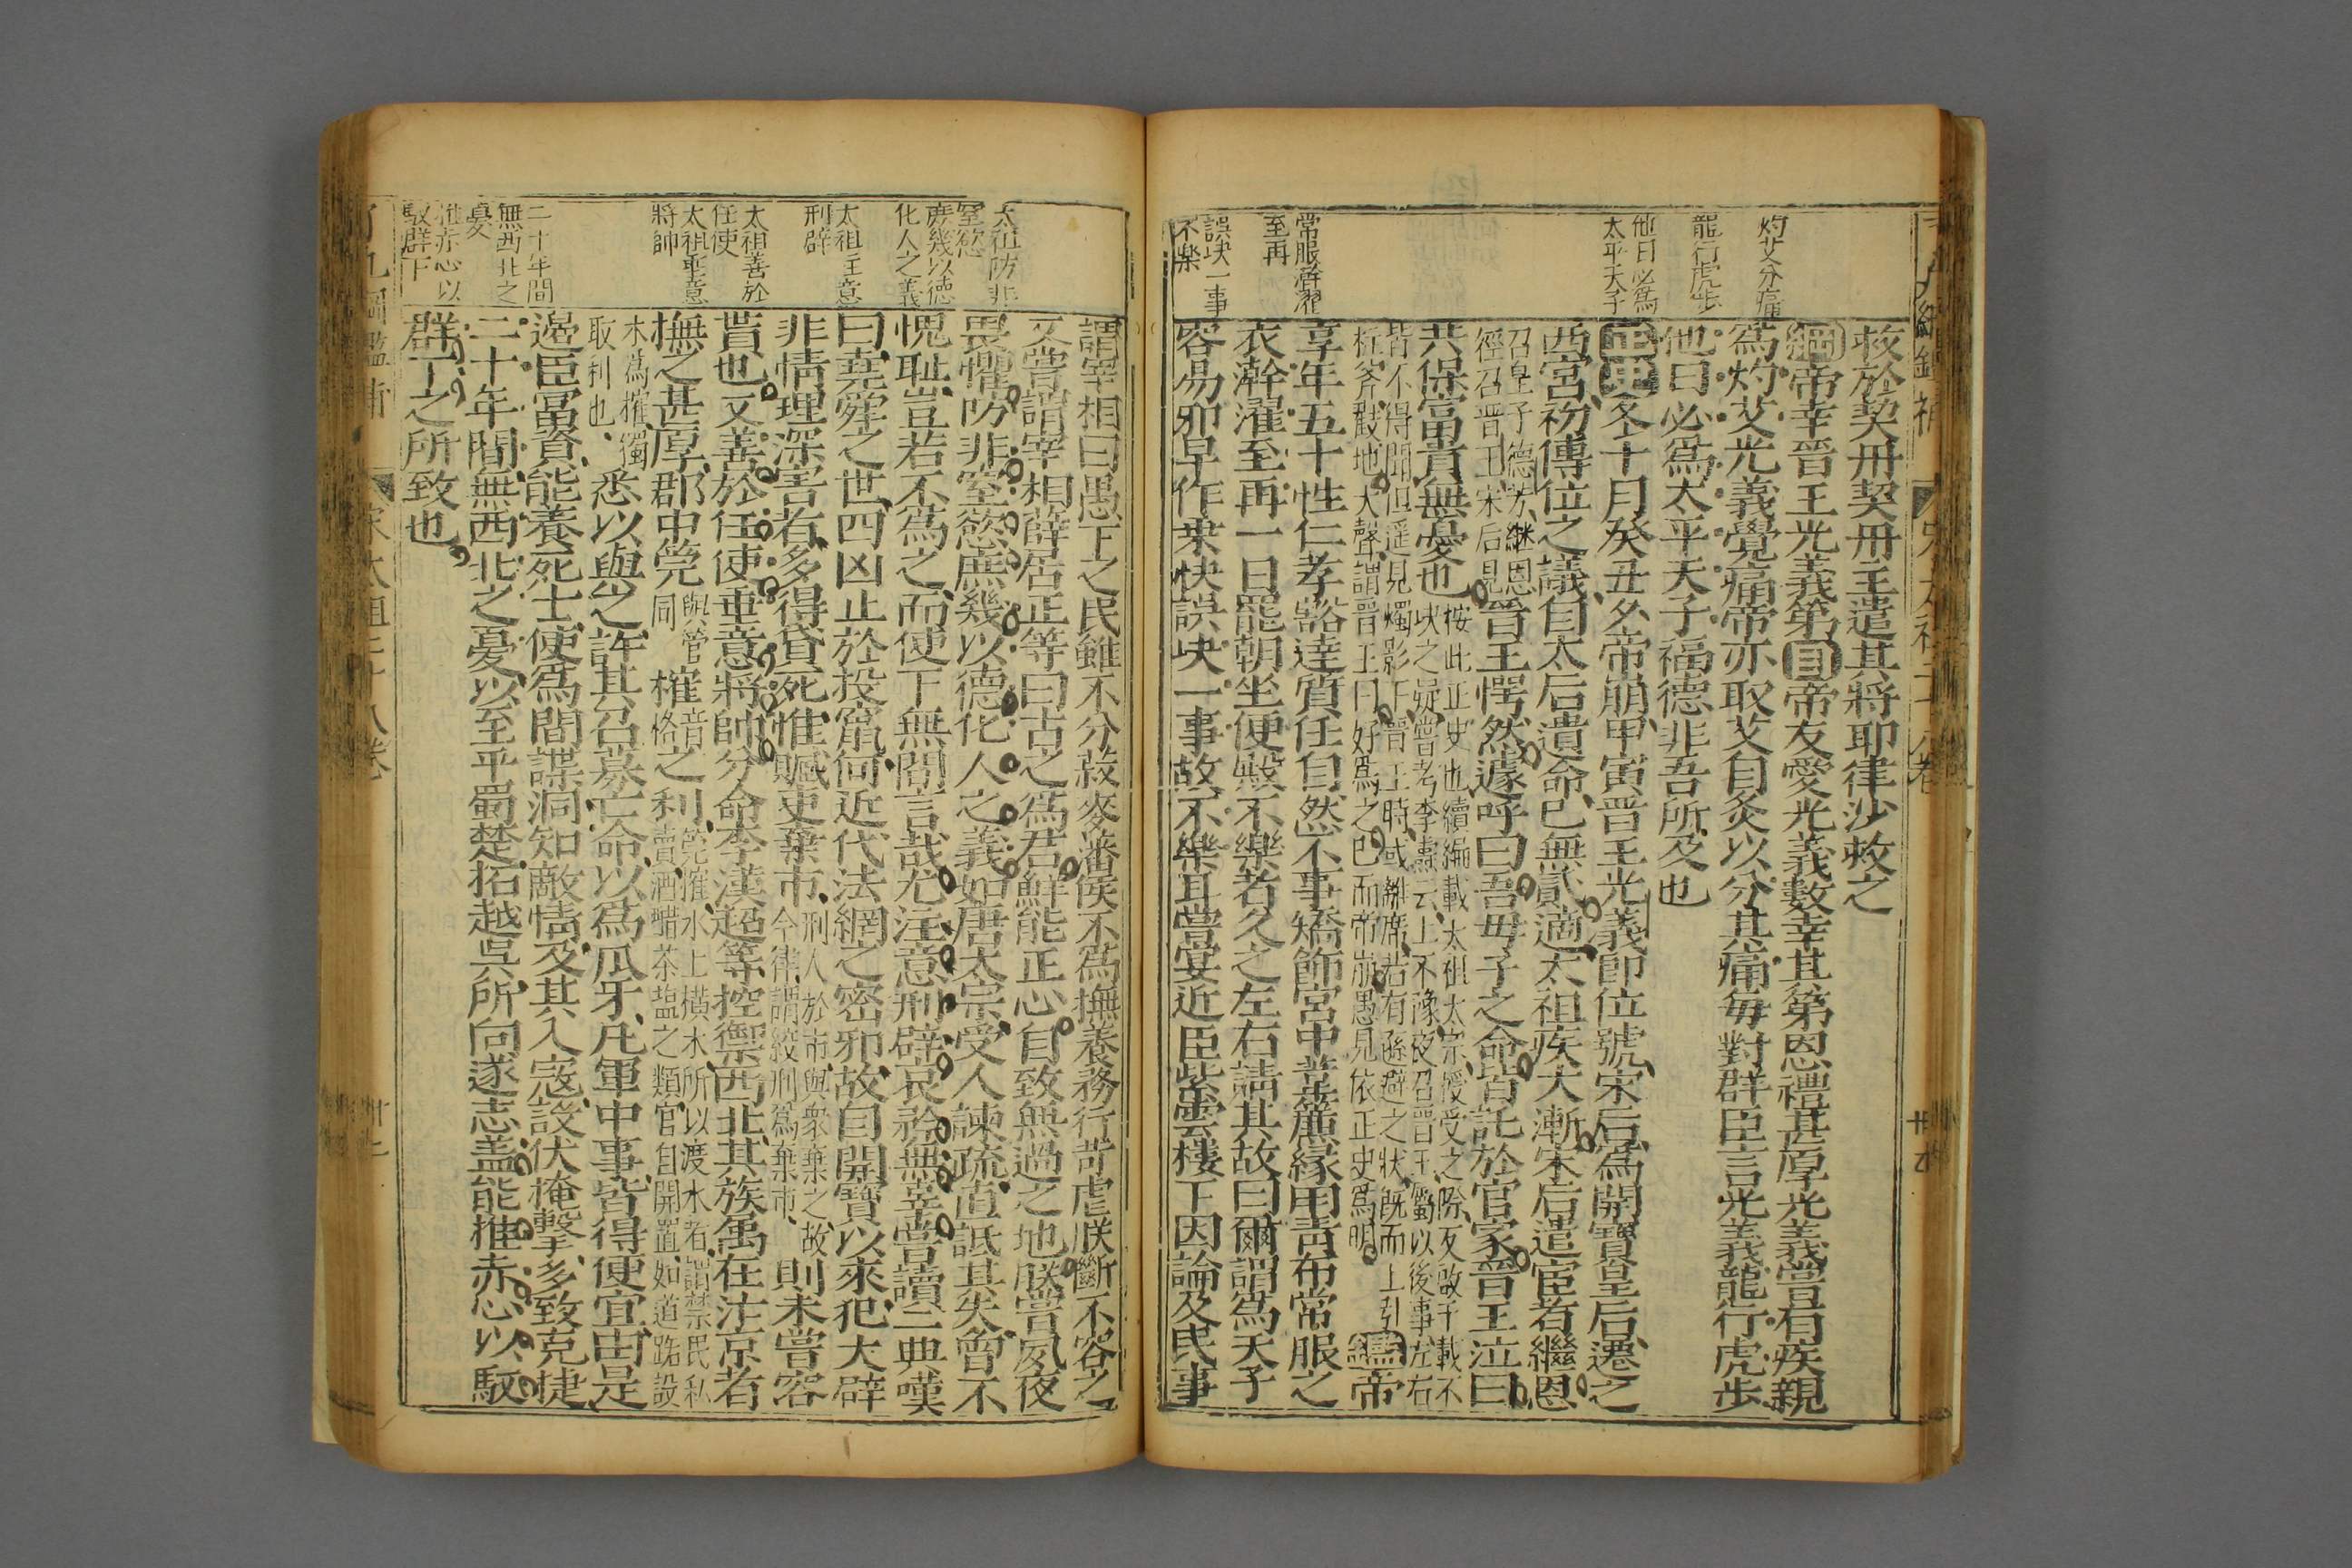 灼艾分痛
龍行虎步
他日必爲
太平天子
常服澣濯
至再
誤决一事
不樂
救於契丹契丹主遣其將耶律沙救之
綱帝幸晉王光義第目帝友愛光義數幸其第恩禮甚厚光義嘗有疾親
爲灼艾光義覺痛帝亦取艾自灸以分其痛每對群臣言光義龍行虎步
他日必爲太平天子福德非吾所及也
正史冬十月癸丑夕帝崩甲寅晉王光義卽位號宋后爲開寶皇后遷之
西宮初傳位之議自太后遺命已無貳適太祖疾大漸宋后遣宦者繼恩
召皇子德芳継恩
徑召晉王宋后見
晉王愕然遽呼曰吾母子之命皆託於官家晉王泣曰
共保富貴無憂也
按此正史也續編載太祖太宗授受之際反啟千載不
决之疑嘗考李燾云上不豫夜召晉王屬以後事左右
皆不得聞但遥見燭影下晉王時或離席若有遜避之狀既而上引
柱斧戳地大聲謂晉王曰好爲之已而帝崩愚見依正史爲明
鑑帝
享年五十性仁孝豁達質任自然不事矯飾宮中葦簾緣用靑布常服之
衣澣濯至再一日罷朝坐便殿不樂者久之左右請其故曰爾謂爲天子
容易邪早作乘快誤决一事故不樂耳嘗宴近臣紫雲樓下因論及民事
太祖防非
窒慾
庶幾以德
化人之義
太祖注意
刑辟
太祖善於
任使
太祖垂意
將帥
二十年間
無西北之
憂
推赤心以
馭群下
謂宰相曰愚下之民雖不分菽麥藩侯不爲撫養務行苛虐朕斷不容之
又嘗謂宰相薛居正等曰古之爲君鮮能正心自致無過之地朕嘗夙夜
畏懼防非窒慾庶幾以德化人之義如唐太宗受人諫疏直詆其失曾不
愧耻豈若不爲之而使下無間言哉尤注意刑辟哀矜無辜嘗讀二典嘆
曰堯舜之世四凶止於投竄何近代法網之密邪故自開寶以來犯大辟
非情理深害者多得貸死惟贓吏棄市
刑人於市與衆棄之故
今律謂絞刑爲棄市
則未嘗容
貰也又善於任使垂意將帥分命李漢超等控禦西北其族屬在汴京者
撫之甚厚郡中筦
與管
同
榷
音
恪
之利
筦榷水上橫木所以渡水者謂禁民私
賣酒醋茶塩之類官自開置如道路設
木爲榷獨
取利也
悉以與之許其召募亡命以爲爪牙凡軍中事皆得便宜由是
邊臣富資能養死士使爲間諜洞知敵情及其入寇設伏掩擊多致克捷
二十年間無西北之憂以至平蜀楚拓越吳所向遂志盖能推赤心以馭
群下之所致也
宋太祖三十八卷